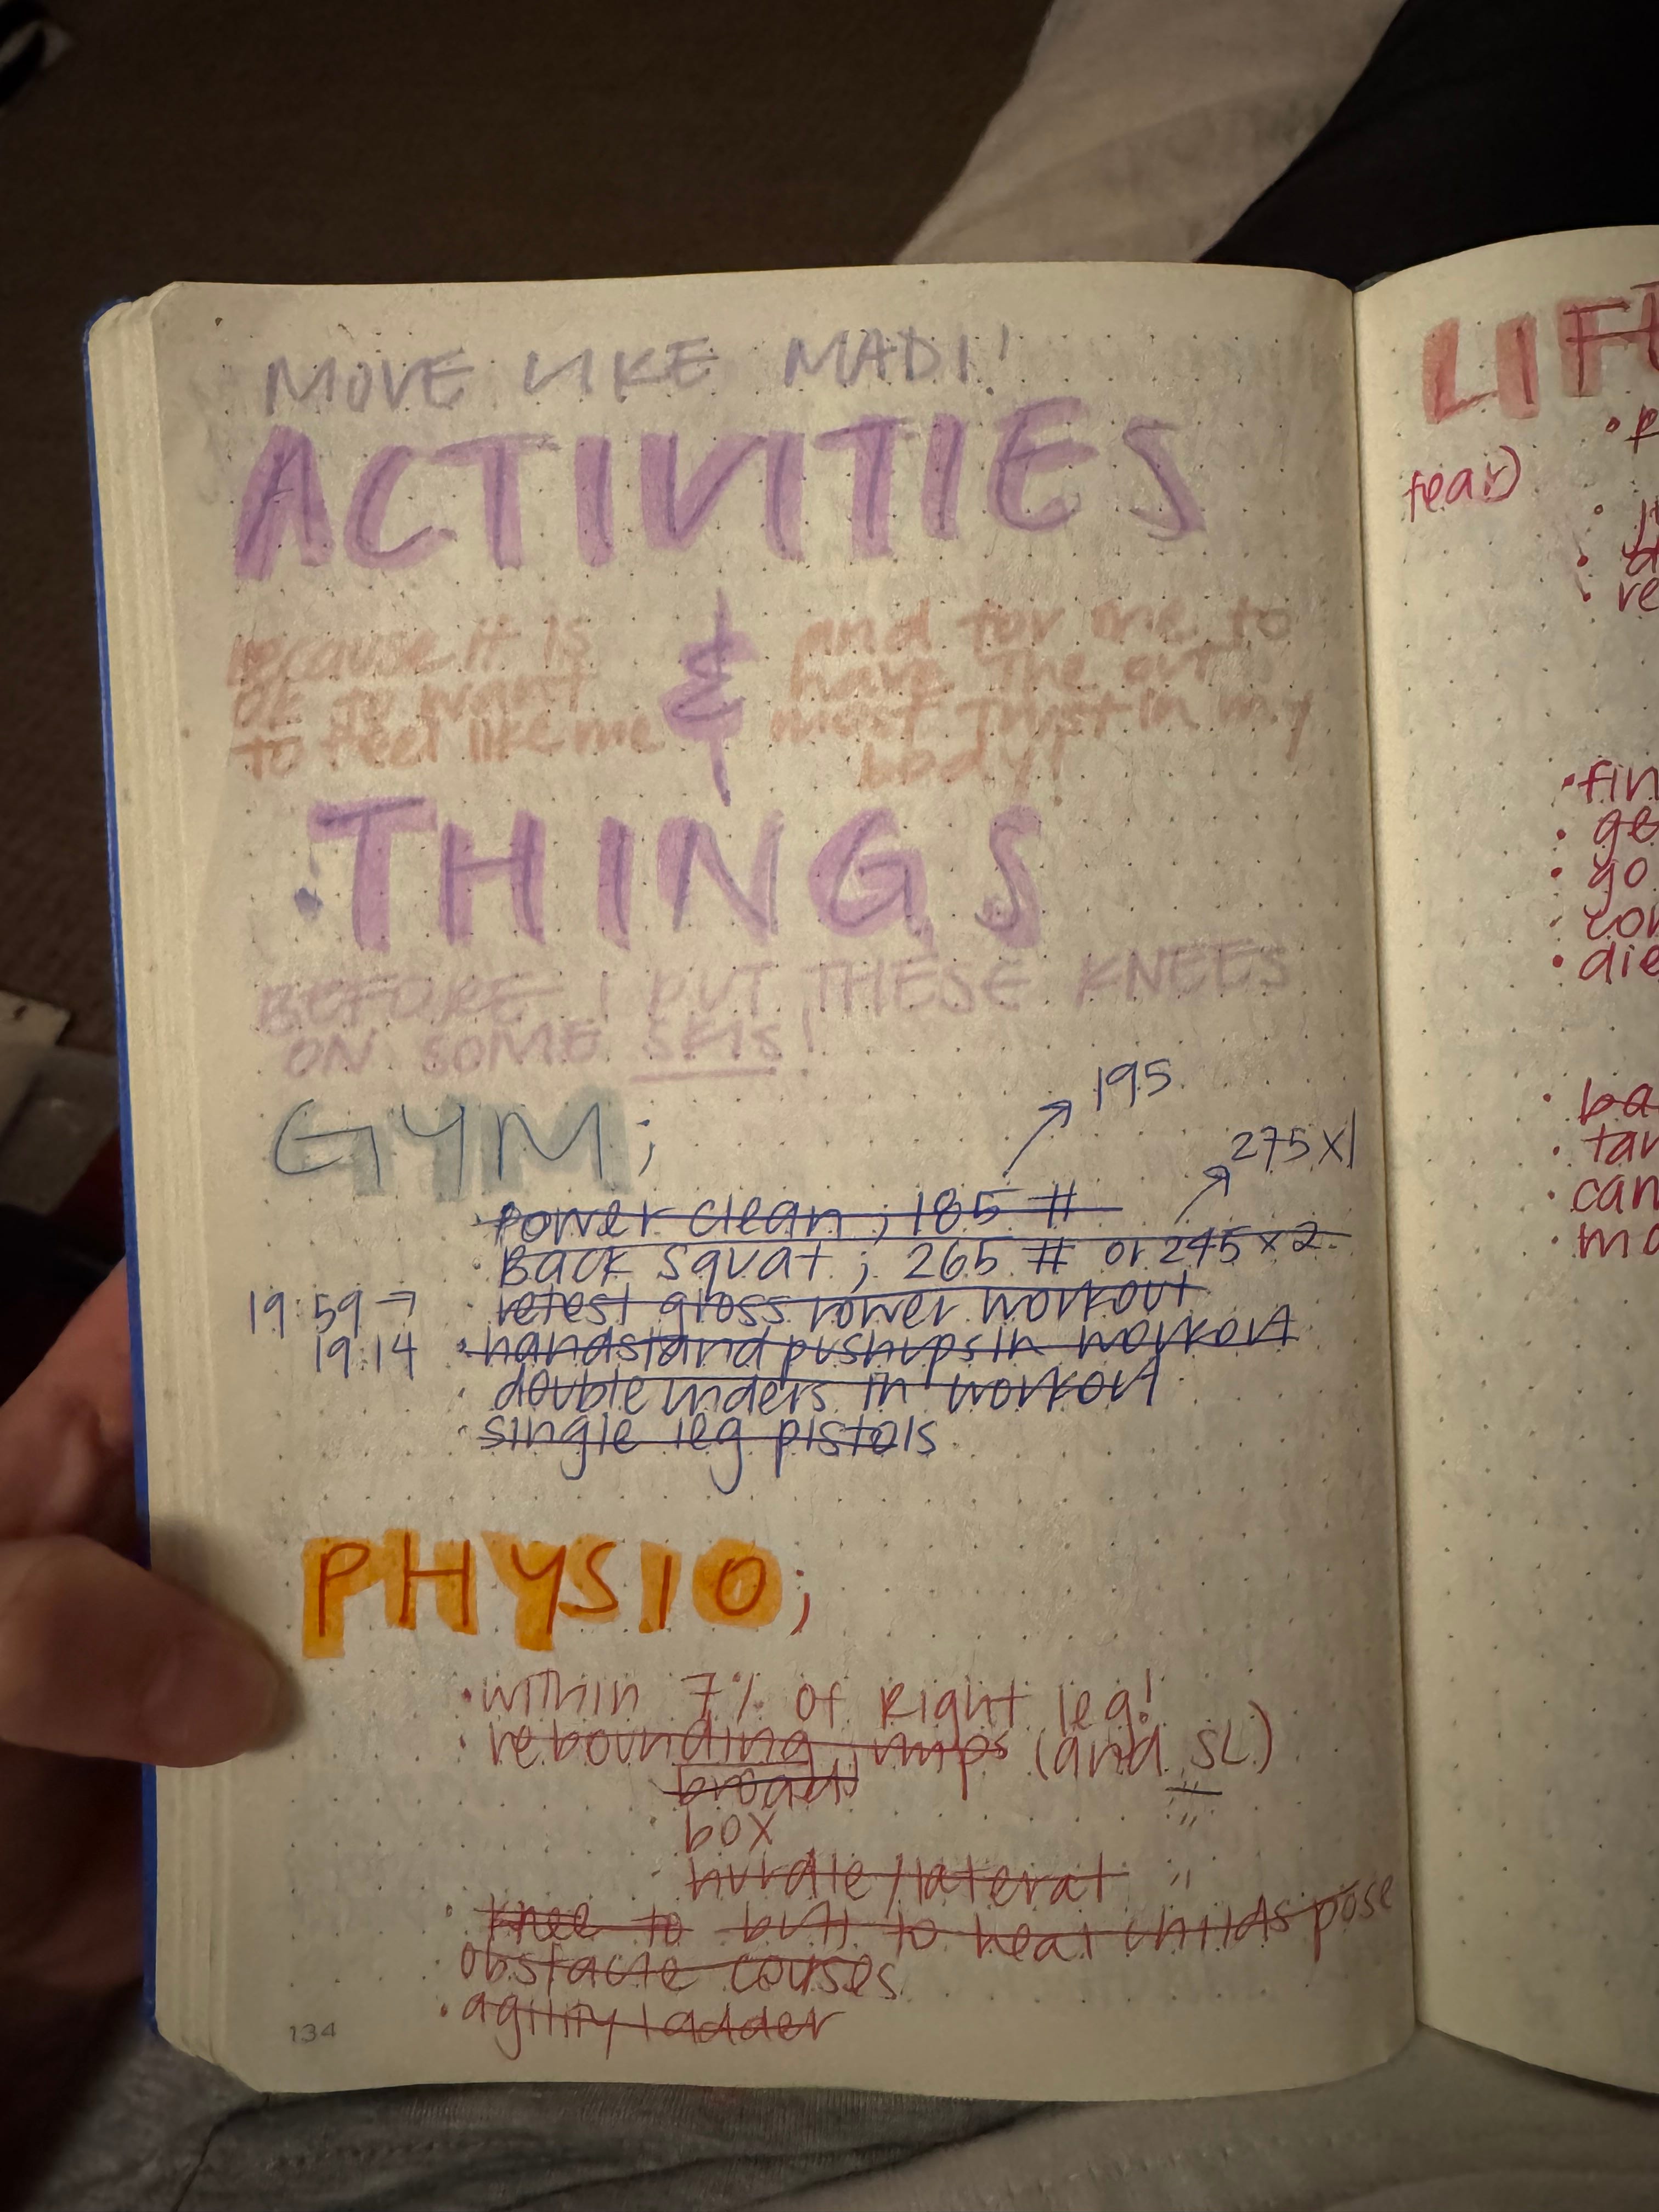 MOVE LIKE MADI!
ACTIVITIES
because it is
ok to want
to feel like me
&
and for me to
have the out
most trust in my
body!
THINGS
BEFORE I PUT THESE KNEES
ON SOME SKIS!
GYM;
195
275x1
• power clean; 185 #
• Back squat; 265 # or 245 x 2
19:59 → • retest gross rower workout
19:14 • handstand pushups in workout
• double unders in workout
• single leg pistols
PHYSIO;
• within 7% of Right leg!
• rebounding jumps (and SL)
broad
box
hurdle/lateral "
• knee to butt to heal childs pose
obstacle couses
• agility ladder
134
LIF
fear)
• fin
• ge
• go
• con
• die
• ba
• tar
• can
• mo